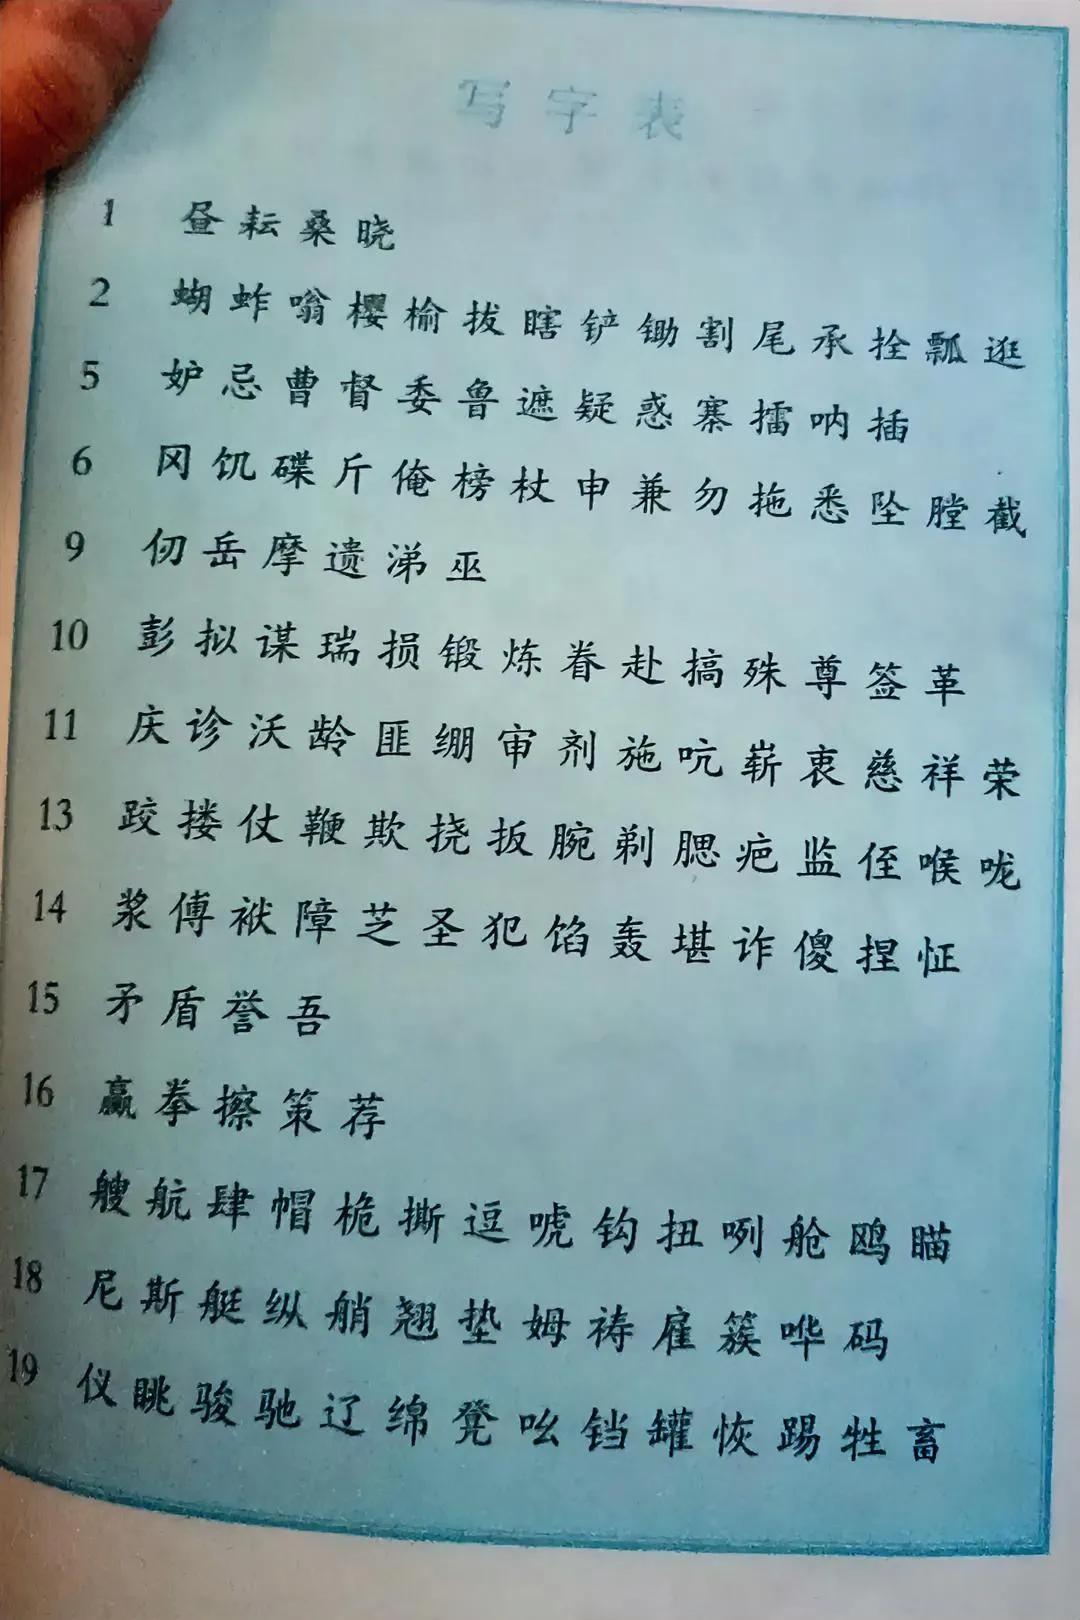 写字表
1 昼 耘 桑 晓
2 蝴 蚱 嗡 樱 榆 拔 瞎 铲 锄 割 尾 承 拴 瓢 逛
5 妒 忌 曹 督 委 鲁 遮 疑 惑 寨 擂 呐 插
6 冈 饥 碟 斤 俺 榜 杖 申 兼 勿 拖 悉 坠 膛 截
9 仞 岳 摩 遗 涕 巫
10 彭 拟 谋 瑞 损 锻 炼 眷 赴 搞 殊 尊 签 革
11 庆 诊 沃 龄 匪 绷 审 剂 施 吭 崭 衷 慈 祥 荣
13 跤 搂 仗 鞭 欺 挠 扳 腕 剃 腮 疤 监 侄 喉 咙
14 浆 傅 袱 障 芝 圣 犯 馅 轰 堪 诈 傻 捏 怔
15 矛 盾 誉 吾
16 赢 拳 擦 策 荐
17 艘 航 肆 帽 桅 撕 逗 唬 钩 扭 咧 舱 鸥 瞄
18 尼 斯 艇 纵 艄 翘 垫 姆 祷 雇 簇 哗 码
19 仪 眺 骏 驰 辽 绵 凳 吆 铛 罐 恢 踢 牲 畜